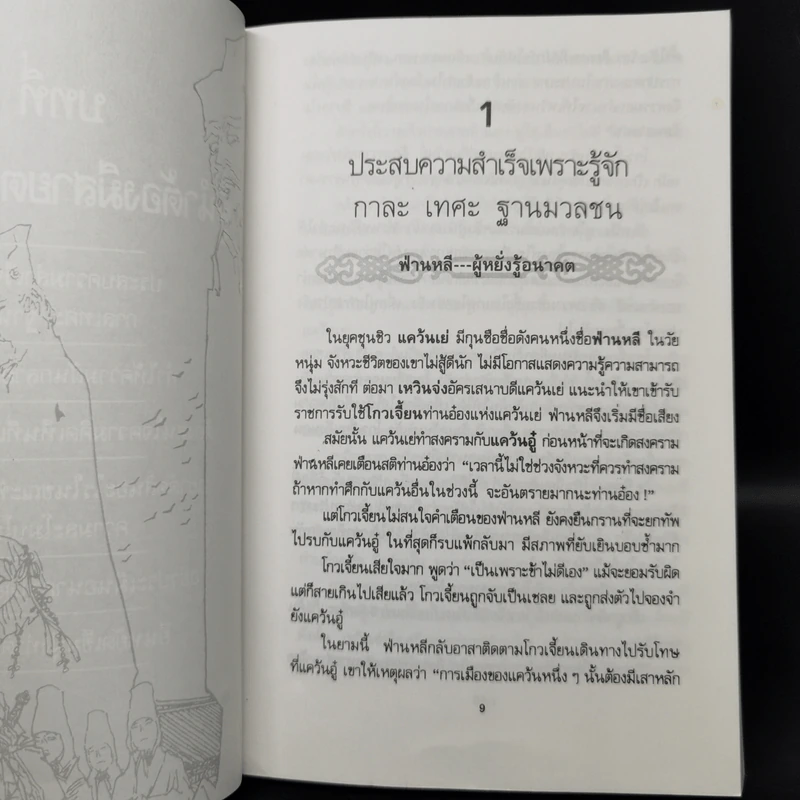 บทที่
1
ประสบความสำเร็จเพราะรู้จัก
กาละ เทศะ ฐานมวลชน
ฟ่านหลี---ผู้หยั่งรู้อนาคต
ในยุคชุนชิว แคว้นเย่ มีกุนซือชื่อดังคนหนึ่งชื่อฟ่านหลี ในวัย
หนุ่ม จังหวะชีวิตของเขาไม่สู้ดีนัก ไม่มีโอกาสแสดงความรู้ความสามารถ
จึงไม่รุ่งสักที ต่อมา เหวินจ่งอัครเสนาบดีแคว้นเย่ แนะนำให้เขาเข้ารับ
ราชการรับใช้โกวเจี้ยนท่านอ๋องแห่งแคว้นเย่ ฟ่านหลีจึงเริ่มมีชื่อเสียง
สมัยนั้น แคว้นเย่ทำสงครามกับแคว้นอู๋ ก่อนหน้าที่จะเกิดสงคราม
ฟ่านหลีเคยเตือนสติท่านอ๋องว่า “เวลานี้ไม่ใช่ช่วงจังหวะที่ควรทำสงคราม
ถ้าหากทำศึกกับแคว้นอื่นในช่วงนี้ จะอันตรายมากนะท่านอ๋อง !”
แต่โกวเจี้ยนไม่สนใจคำเตือนของฟ่านหลี ยังคงยืนกรานที่จะยกทัพ
ไปรบกับแคว้นอู๋ ในที่สุดก็รบแพ้กลับมา มีสภาพที่ยับเยินบอบช้ำมาก
โกวเจี้ยนเสียใจมาก พูดว่า “เป็นเพราะข้าไม่ดีเอง” แม้จะยอมรับผิด
แต่ก็สายเกินไปเสียแล้ว โกวเจี้ยนถูกจับเป็นเชลย และถูกส่งตัวไปจองจำ
ยังแคว้นอู๋
ในยามนี้ ฟ่านหลีกลับอาสาติดตามโกวเจี้ยนเดินทางไปรับโทษ
ที่แคว้นอู๋ เขาให้เหตุผลว่า “การเมืองของแคว้นหนึ่ง ๆ นั้นต้องมีเสาหลัก
9